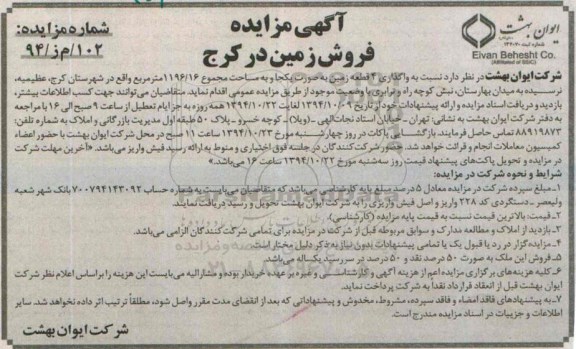 ایوان بهشت
شماره ثبت ۱۴۶۰۴۰
Eivan Behesht Co.
(Affiliated of SSIC)
آگهی مزایده
فروش زمین در کرج
شماره مزایده:
۱۰۲/م ز/۹۴
شرکت ایوان بهشت در نظر دارد نسبت به واگذاری قطعه زمین به صورت یکجا و به مساحت مجموع ۱۱۹۶/۱۶ مترمربع واقع در شهرستان کرج، عظیمیه،
نرسیده به میدان بهارستان، نبش کوچه راه و ترابری، با وضعیت موجود از طریق مزایده عمومی اقدام نماید. متقاضیان می‌توانند جهت کسب اطلاعات بیشتر،
بازدید و دریافت اسناد مزایده و ارائه پیشنهادات خود از تاریخ ۱۳۹۴/۱۰/۰۹ لغایت ۱۳۹۴/۱۰/۲۲ همه روزه به جز ایام تعطیل از ساعت ۹ صبح الی ۱۶ با مراجعه
به دفتر شرکت ایوان بهشت به نشانی: تهران - خیابان استاد نجات‌الهی - (ویلا) - کوچه خسرو - پلاک ۵۰ طبقه اول مدیریت بازرگانی و املاک به شماره تلفن:
۸۸۹۱۹۸۷۳ تماس حاصل فرمایند. بازگشایی پاکات در روز چهارشنبه مورخ ۱۳۹۴/۱۰/۲۳ ساعت ۱۱ صبح در محل شرکت ایوان بهشت با حضور اعضاء
کمیسیون معاملات انجام و قرائت خواهد شد. حضور شرکت کنندگان در جلسه فوق اختیاری و منوط به ارائه رسید فیش واریز می‌باشد. «آخرین مهلت شرکت
در مزایده و تحویل پاکت‌های پیشنهاد قیمت روز سه‌شنبه مورخ ۱۳۹۴/۱۰/۲۲ ساعت ۱۶ می‌باشد.»
شرایط و نحوه شرکت در مزایده:
۱- مبلغ سپرده شرکت در مزایده معادل ۵ درصد مبلغ پایه کارشناسی می‌باشد که متقاضیان می‌بایست به شماره حساب ۷۰۰۷۹۴۱۴۳۰۹۲ بانک شهر شعبه
ولیعصر - دستگردی کد ۲۲۸ واریز و اصل فیش واریزی را به شرکت ایوان بهشت تحویل و رسید دریافت نمایند.
۲- قیمت: بالاترین قیمت نسبت به قیمت پایه مزایده (کارشناسی).
۳- بازدید از املاک و مطالعه مدارک و سوابق مربوطه قبل از شرکت در مزایده برای تمامی شرکت کنندگان الزامی می‌باشد.
۴- مزایده گزار در رد یا قبول یک یا تمامی پیشنهادات بدون نیاز به ذکر دلیل مختار است.
۵- فروش این ملک به صورت ۵۰ درصد نقد و ۵۰ درصد در سررسید یکساله می‌باشد.
۶- کلیه هزینه‌های برگزاری مزایده اعم از هزینه آگهی و کارشناسی و غیره بر عهده خریدار بوده و مشارالیه می‌بایست این هزینه را براساس اعلام نظر شرکت
ایوان بهشت قبل از انعقاد قرارداد نقداً به شرکت پرداخت نماید.
۷- به پیشنهادهای فاقد امضاء و فاقد سپرده، مشروط، مخدوش و پیشنهاداتی که بعد از انقضای مدت مقرر واصل شود، مطلقاً ترتیب اثر داده نخواهد شد. سایر
اطلاعات و جزییات در اسناد مزایده مندرج است.
شرکت ایوان بهشت